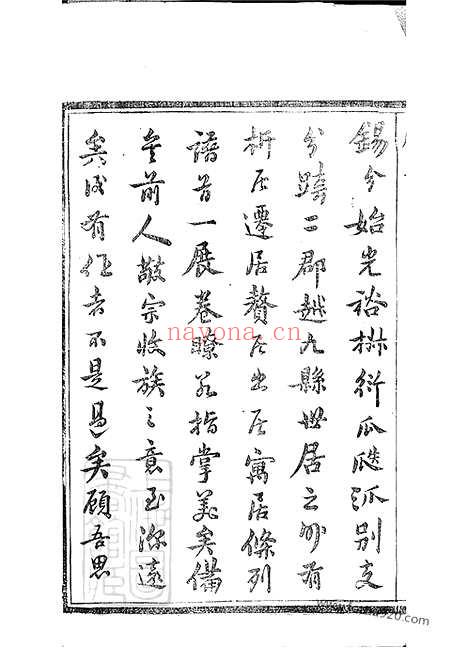 錫兮始光裕椒衍瓜瓞派別支
分跨二郡越九縣世居之外有
析居遷居贅居出居寓居條列
譜首一展卷瞭若指掌美矣備
矣前人敬宗收族之意至深遠
矣後有作者不是過矣顧吾思
nayona.cn